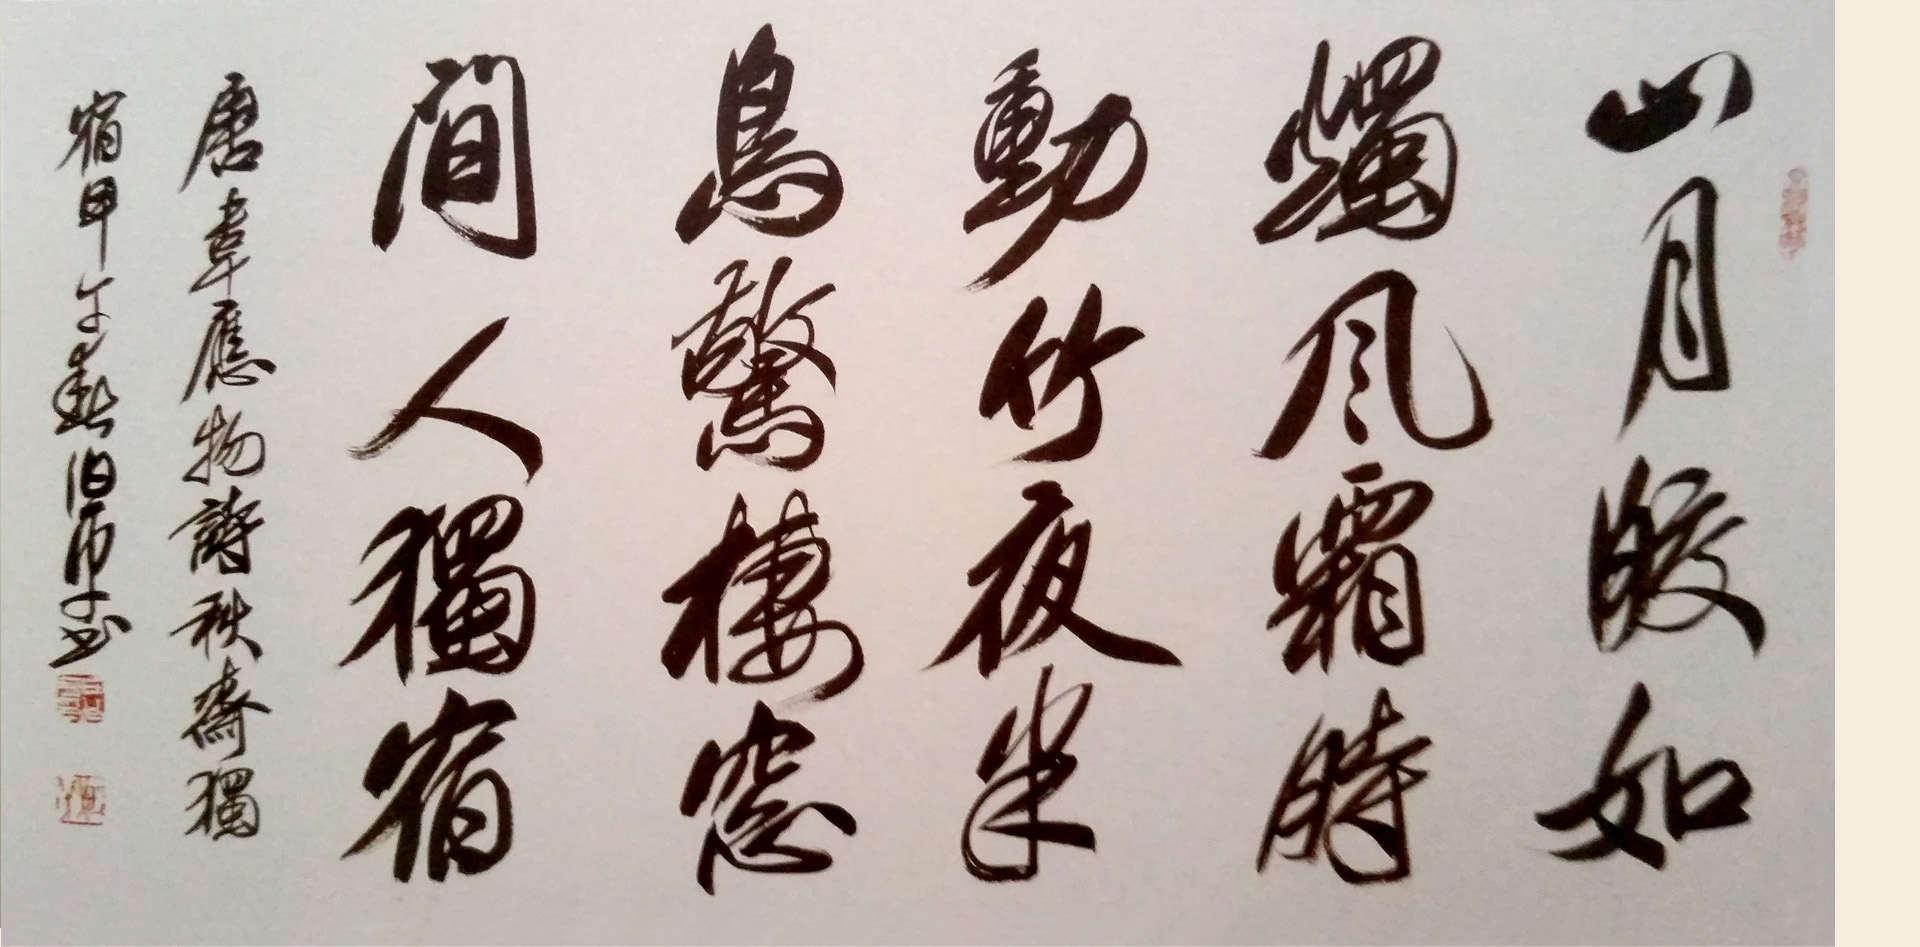 山月皎如
燭風霜時
動竹夜半
鳥驚棲窓
間人獨宿
唐韋應物詩秋齋獨
宿甲午春伯市书